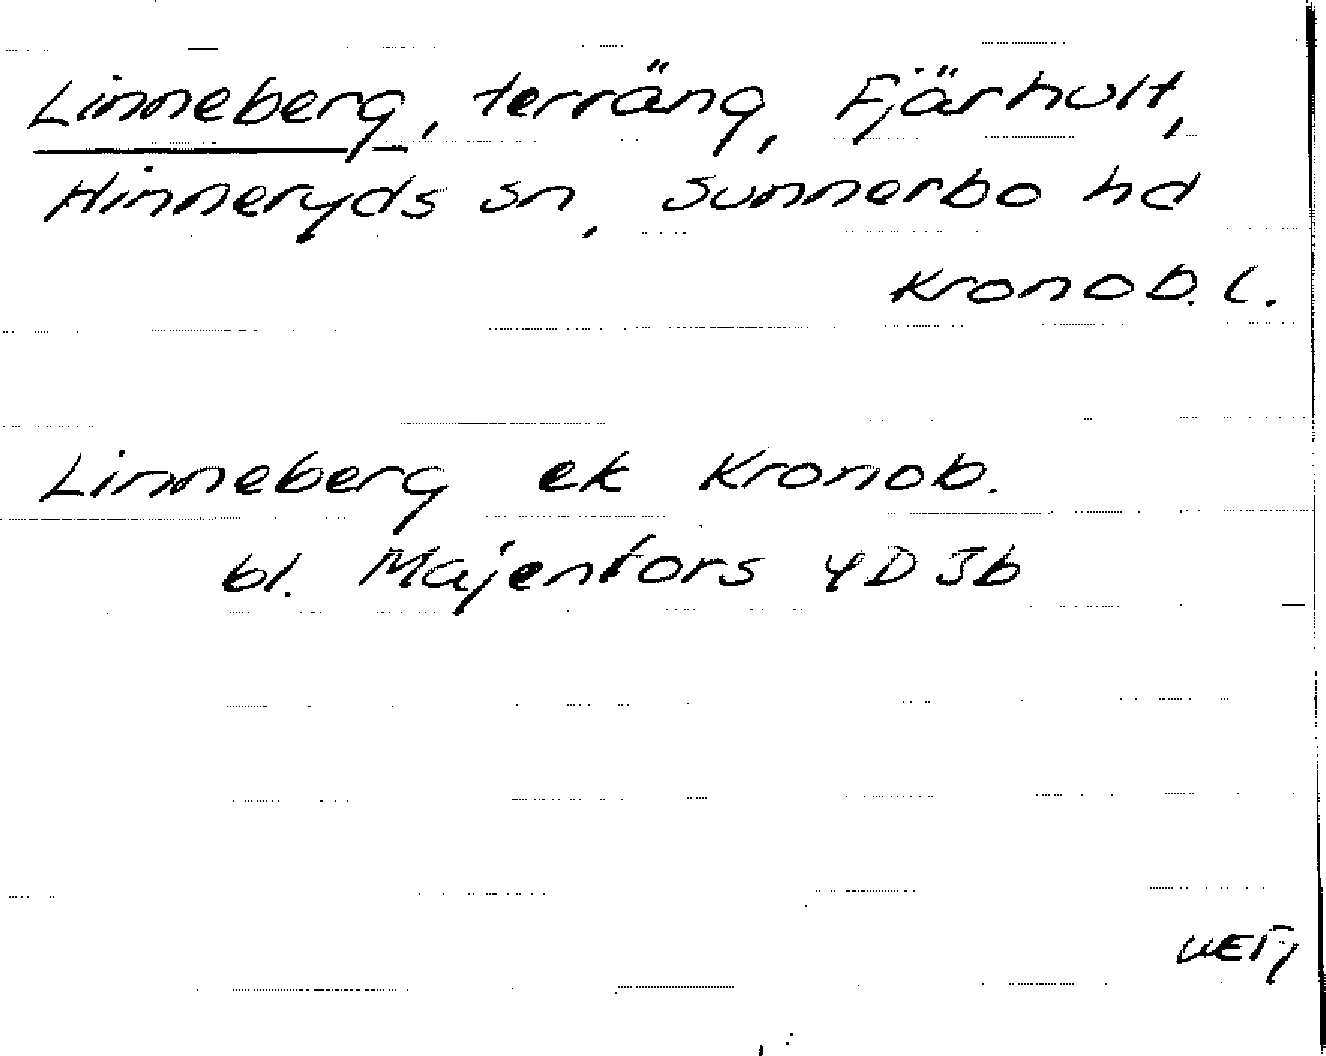 Linneberg, terräng, Fjärhult,
Hinneryds sn, Sunnerbo hd
Kronob. l.
Linneberg ek Kronob.
bl. Majenfors 4D3b